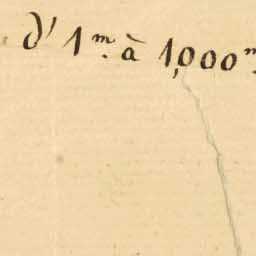 d' 1m. à 1,000m.